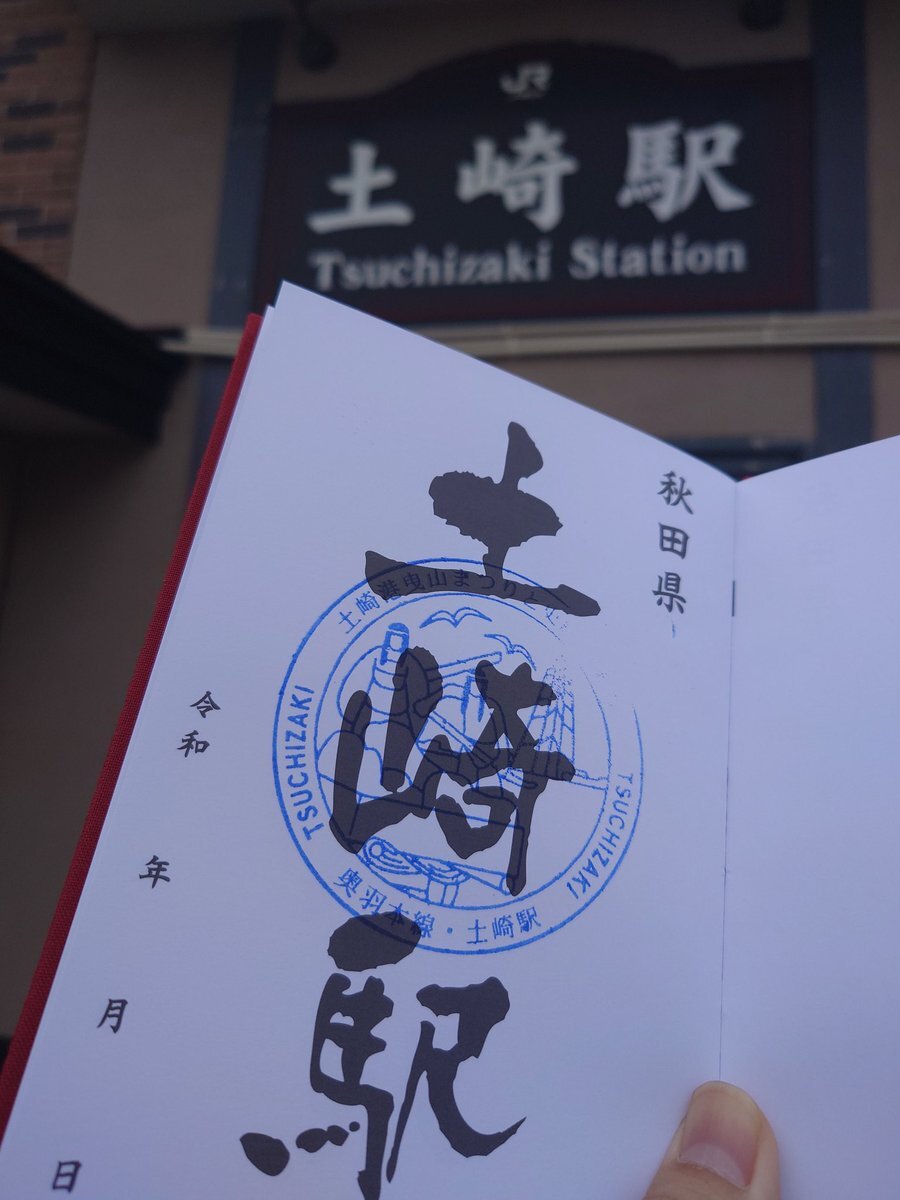 JR
土崎駅
Tsuchizaki Station
秋田県
土崎駅
土崎港曳山まつり
TSUCHIZAKI
TSUCHIZAKI
奥羽本線・土崎駅
令和
年
月
日